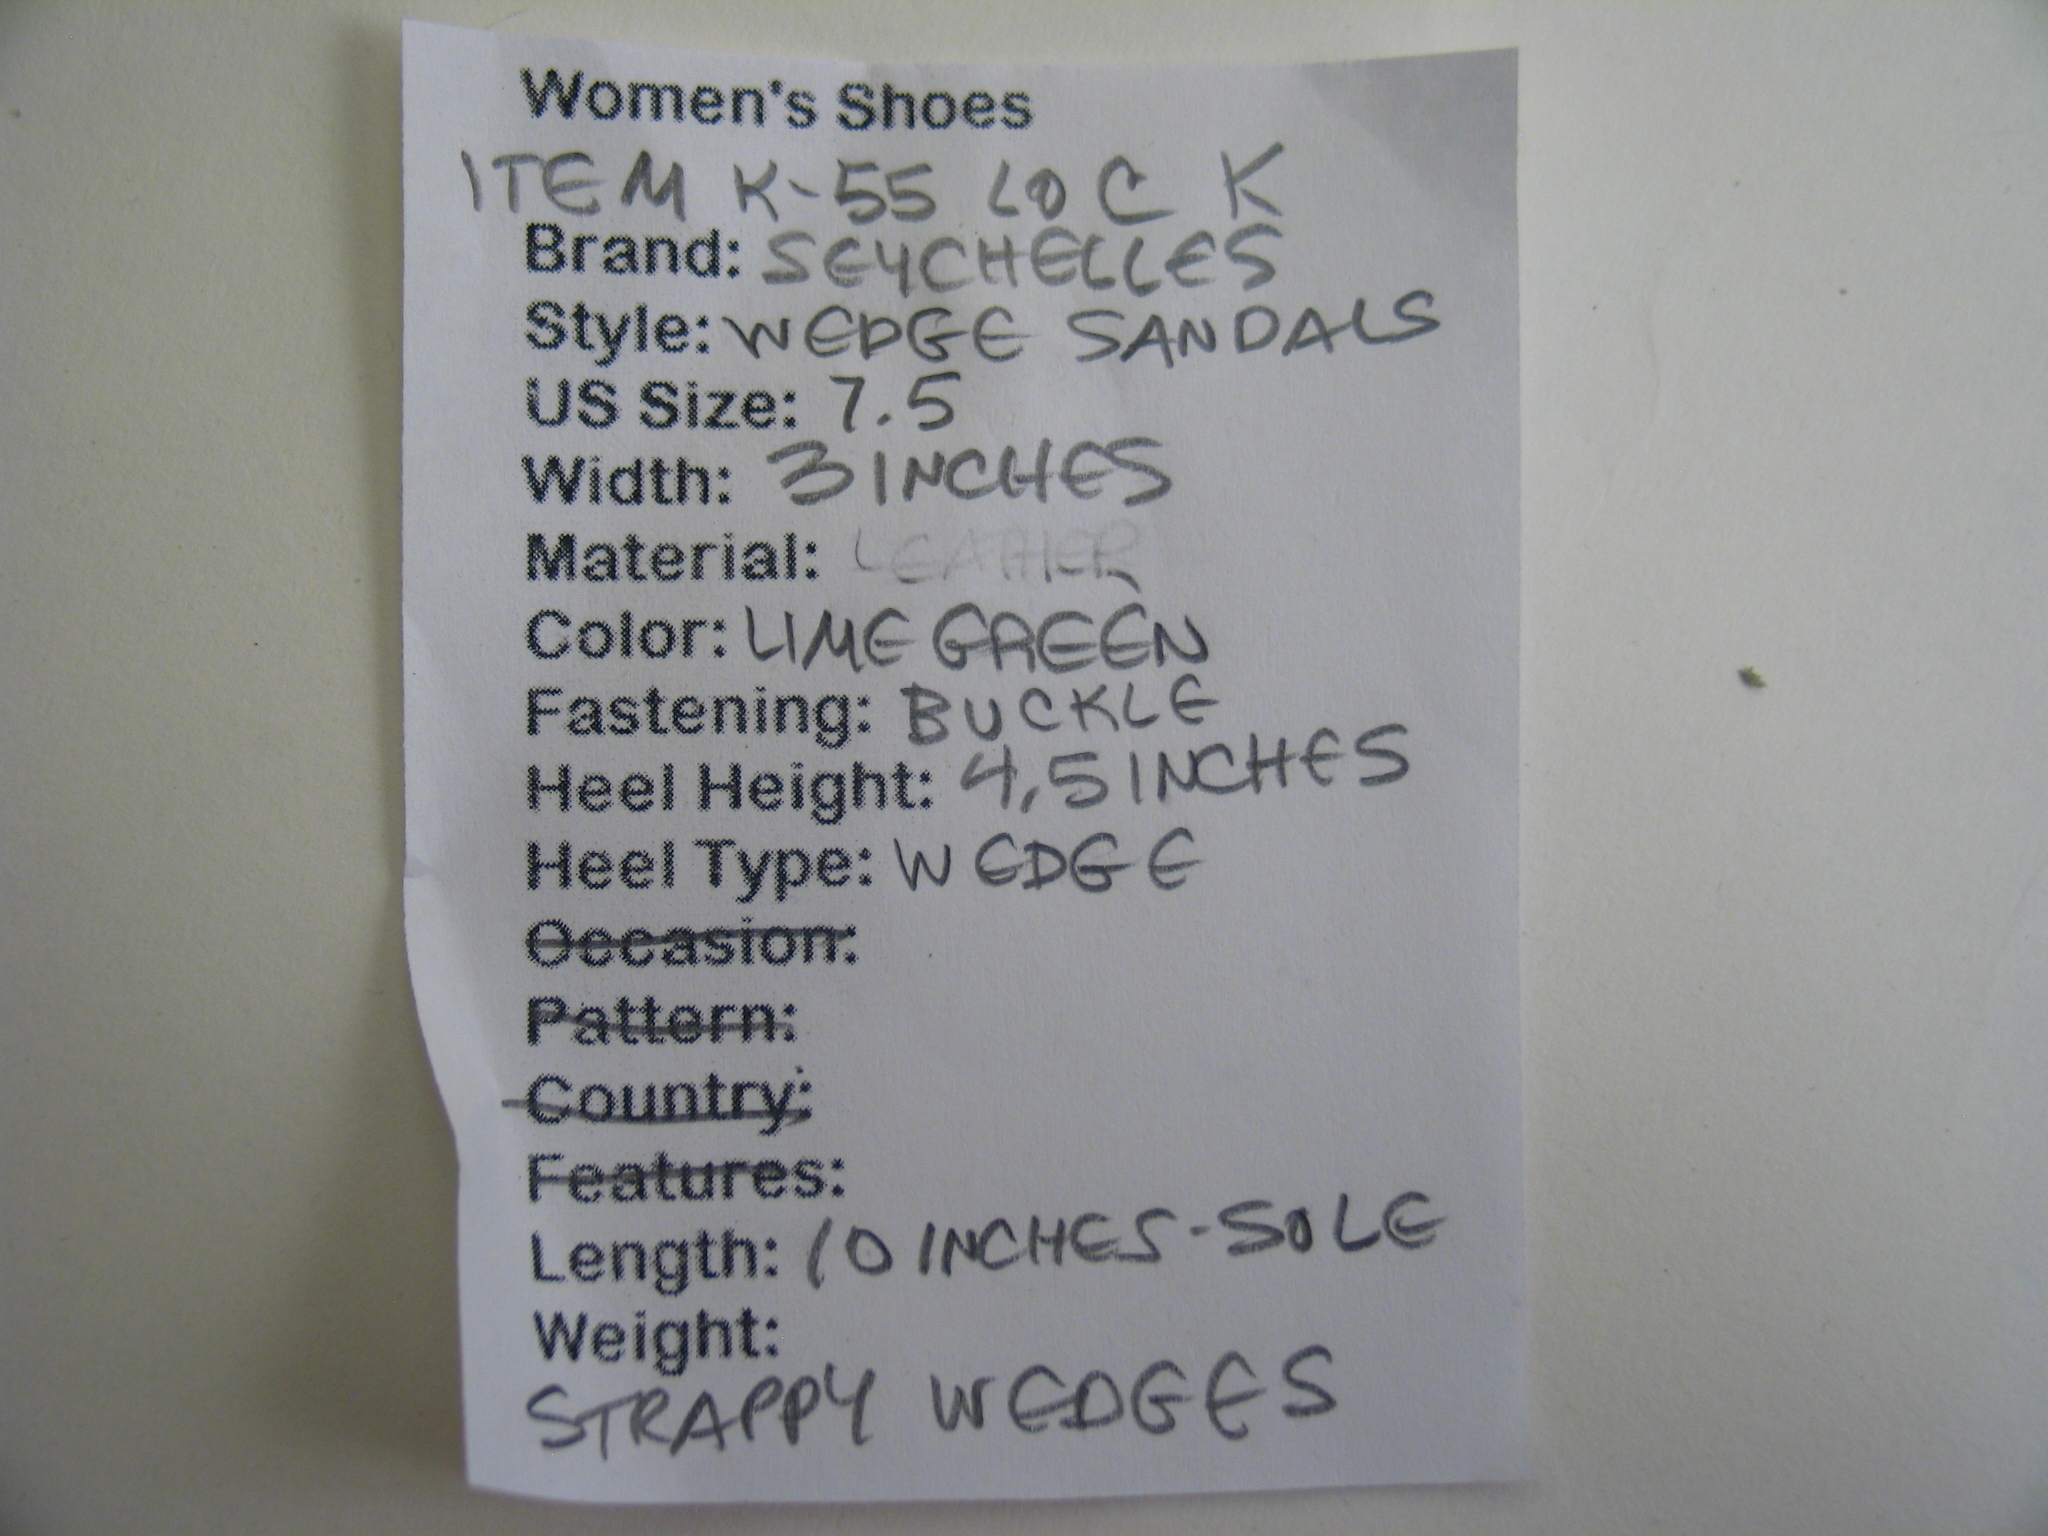 Women's Shoes
ITEM K-55 LOC K
Brand: SEYCHELLES
Style: WEDGE SANDALS
US Size: 7.5
Width: 3 INCHES
Material: LEATHER
Color: LIME GREEN
Fastening: BUCKLE
Heel Height: 4,5 INCHES
Heel Type: WEDGE
Occasion:
Pattern:
Country:
Features:
Length: 10 INCHES-SOLE
Weight:
STRAPPY WEDGES